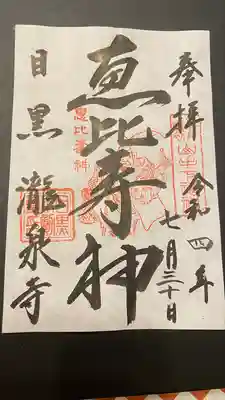 奉拝
令和四年
七月三十日
恵比寿神
恵比寿神
目黒
瀧泉寺